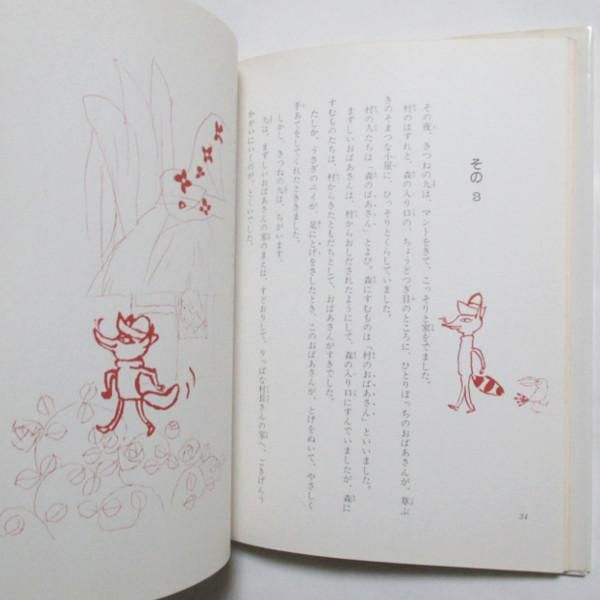 その 3
その夜、きつねの九は、マントをきて、こっそりと家をでました。
村のはずれと、森の入り口の、ちょうどつぎ目のところに、ひとりぼっちのおばあさんが、草ぶ
きのそまつな小屋に、ひっそりとくらしていました。
村の人たちは「森のばあさん」とよび、森にすむものは「村のおばあさん」といいました。
まずしいおばあさんは、村からおしだされたようにして、森の入り口にすんでいましたが、森に
すむものたちは、村からきたともだちとして、おばあさんがすきでした。
たしか、うさぎのニイが、足にとげをさしたとき、このおばあさんが、とげをぬいて、やさしく
手あてをしてくれたとききました。
しかし、きつねの九は、ちがいます。
九は、まずしいおばあさんの家のまえは、すどおりして、りっぱな村長さんの家へ、ごきげんう
かがいにいくのが、とくいでした。
34